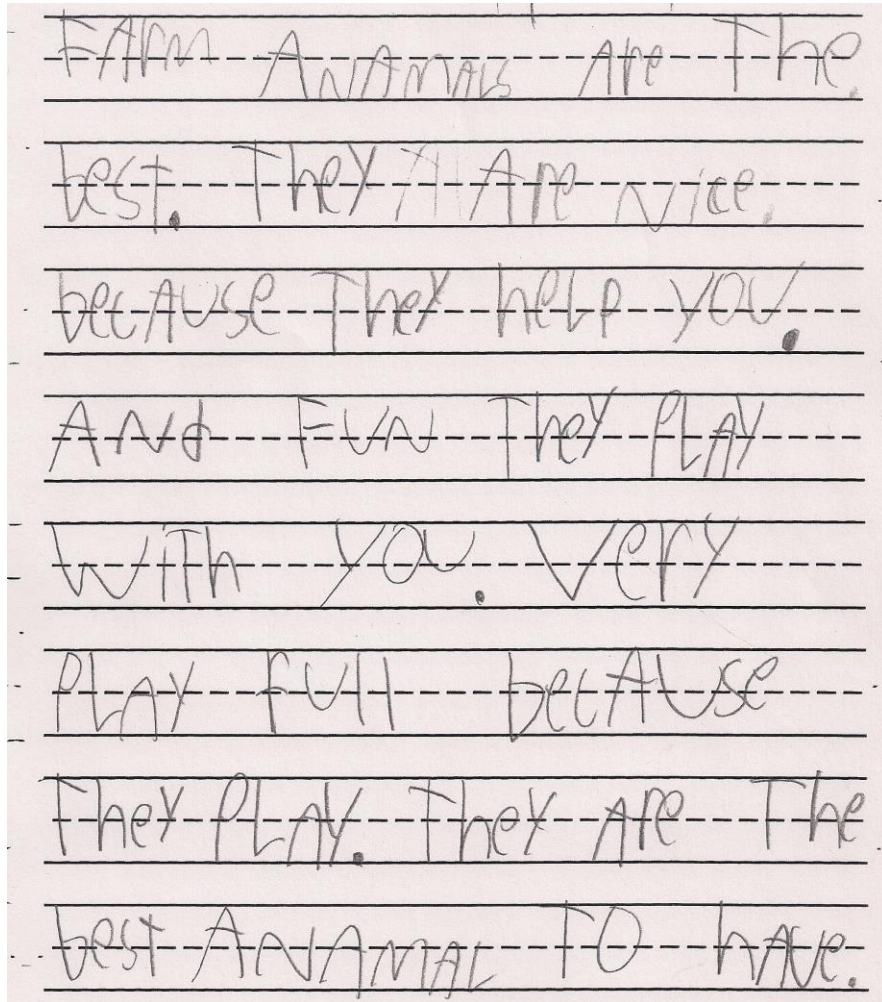 FArm ANAmALS Are The.
best. They Are Nice.
becAUSe They heLP YOU.
ANd FUN They PLAY
WiTh YOU. Very
PLAY fUll becAUSe
They PLAY. They Are The
beST ANAmAL TO hAve.